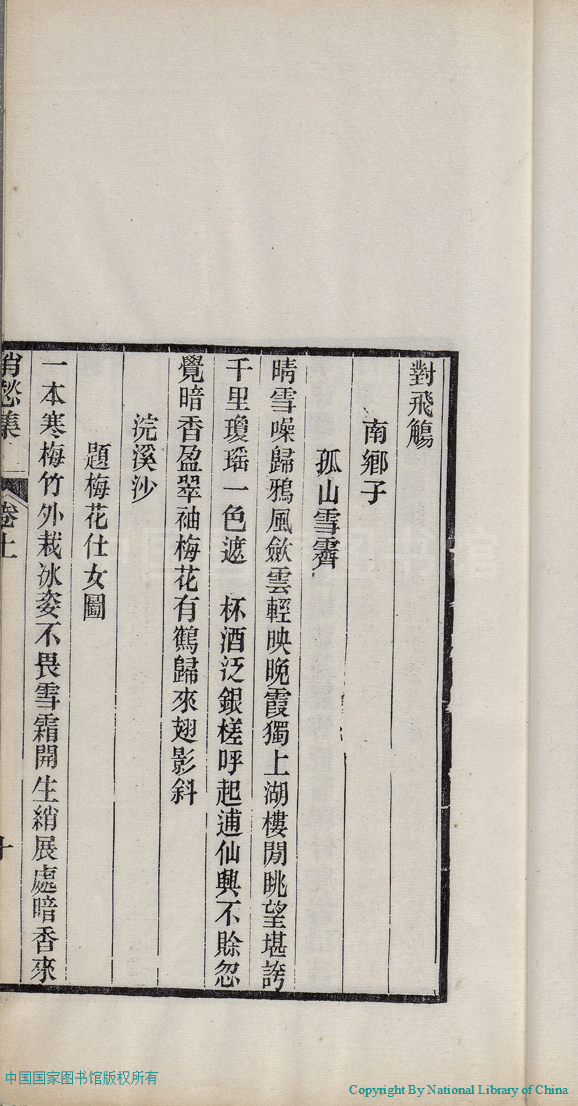 對飛觴
南鄉子
孤山雪霽
晴雪噪歸鴉風斂雲輕映晚霞獨上湖樓閒眺望堪誇
千里瓊瑶一色遮 杯酒泛銀槎呼起逋仙興不賒忽
覺暗香盈翠袖梅花有鶴歸來翅影斜
浣溪沙
題梅花仕女圖
一本寒梅竹外栽冰姿不畏雪霜開生綃展處暗香來
愁集 卷上 十
中国国家图书馆版权所有
Copyright By National Library of China